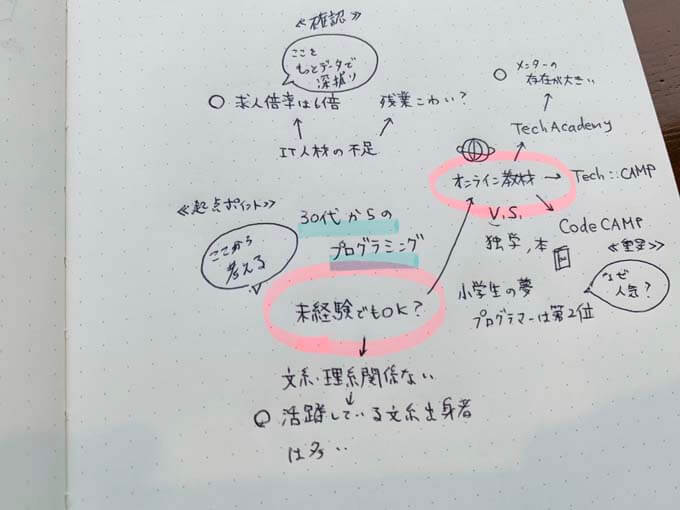 ≪確認≫
ここを
もっとデータで
深掘り
○ 求人倍率は6倍
残業こわい?
IT人材の不足
○ メンターの
存在が大きい
TechAcademy
オンライン教材 → Tech::CAMP
CodeCAMP
V.S.
独学,本
≪起点ポイント≫
ここから
考える
30代からの
プログラミング
未経験でもOK?
≪重要≫
なぜ
人気?
小学生の夢
プログラマーは第2位
文系・理系関係ない
○ 活躍している文系出身者
は多い